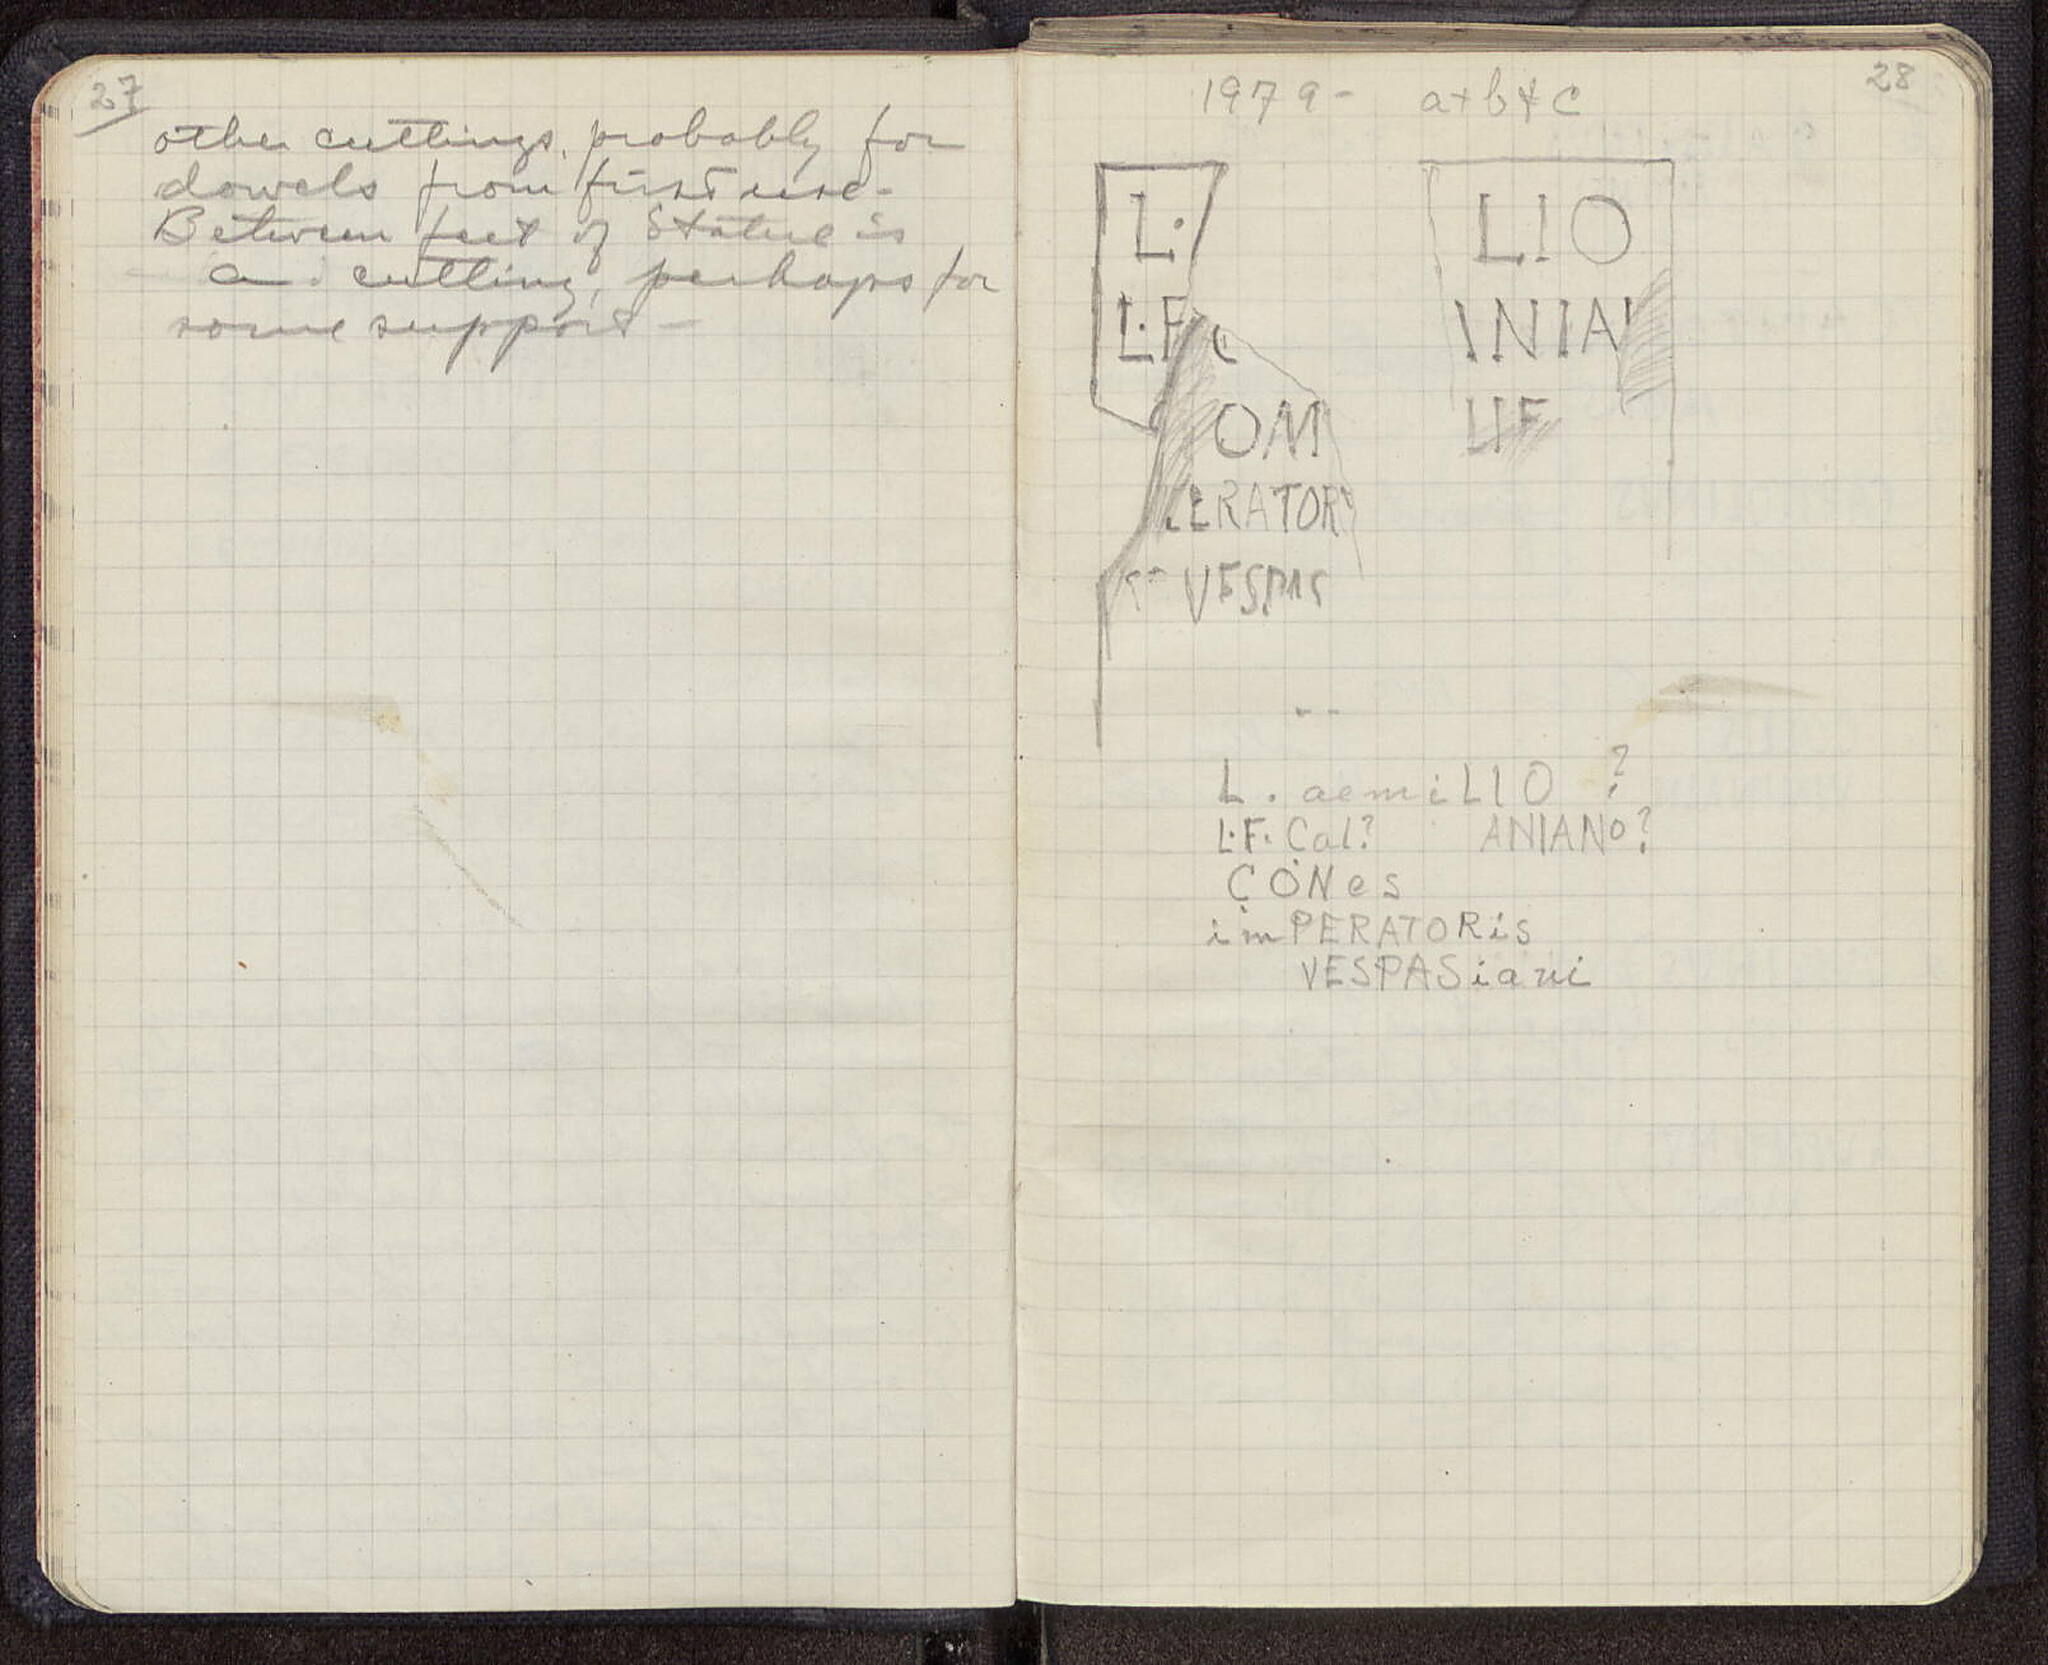 27
other cuttings, probably for
dowels from first use-
Between feet of Statue is
a cutting, perhaps for
some support -
28
1979- a+b+c
L·
L·F C
OM
ERATOR
VESPAS
LIO
INIA
LIF
L. aemiLIO ?
L·F· Cal? ANIANO?
CONes
imPERATORis
VESPASiani